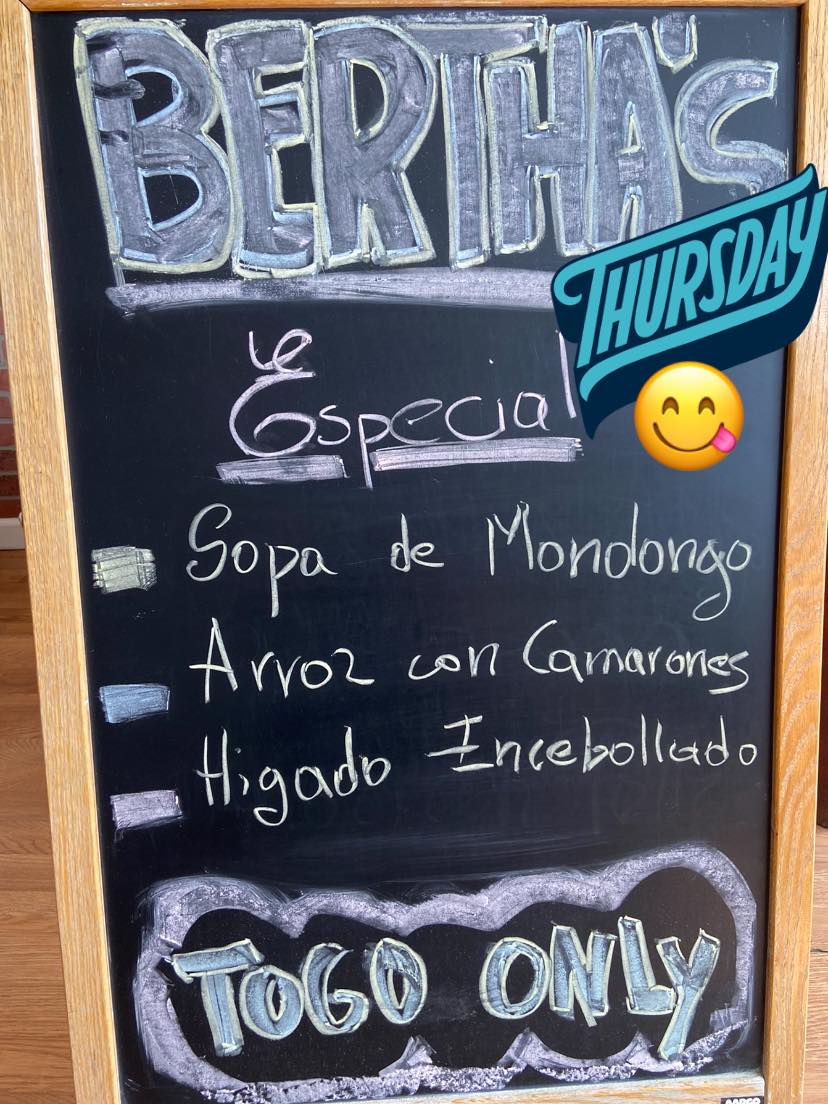 BERTHA'S
THURSDAY
Le
Especial
Sopa de Mondongo
Arroz con Camarones
Higado Incebollado
TOGO ONLY